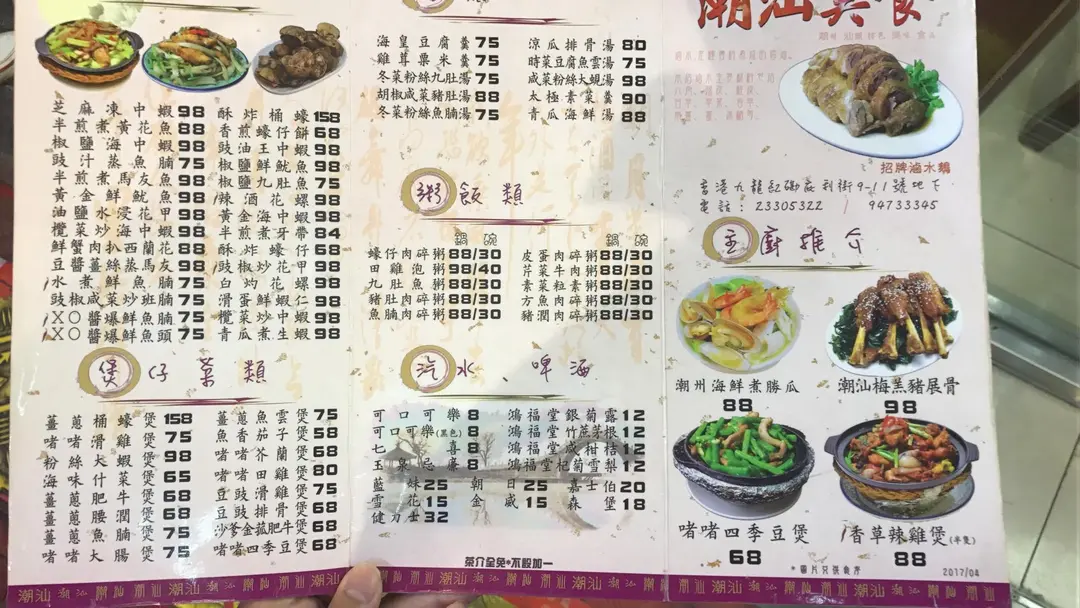 芝麻凍中蝦98
半煎煮黃花魚88
椒鹽海中蝦98
豉汁蒸魚腩75
半煎煮馬友魚98
黃金鮮魷魚98
油鹽水浸花甲98
欖菜炒海中蝦98
鮮蟹肉扒西蘭花88
豆醬薑絲蒸馬友98
水煮鮮魚腩75
豉椒咸菜炒班腩75
XO醬爆鮮魚腩75
XO醬爆鮮魚頭75
酥炸桶蠔158
香煎蠔仔餅68
豉油王中蝦98
椒鹽鮮魷魚98
椒鹽九肚魚75
辣酒花螺98
黃金海中蝦98
半煎煮牙帶84
酥炸蠔仔68
豉椒炒花甲98
白灼花螺98
滑蛋鮮蝦仁98
欖菜炒中蝦98
青瓜煮生蝦98
煲仔菜類
薑蔥桶蠔煲158
啫啫滑雞煲75
粉絲大蝦煲98
海味什菜煲65
薑蔥肥牛煲68
薑蔥腰潤煲68
薑蔥魚腩煲75
啫啫大腸煲75
薑蔥魚雲煲75
魚香茄子煲58
啫啫芥蘭煲68
啫啫田雞煲80
豆豉滑雞煲75
豆豉排骨煲68
沙爹金菰肥牛煲68
啫啫四季豆煲68
海皇豆腐羹75
雞茸粟米羹75
冬菜粉絲九肚湯75
胡椒咸菜豬肚湯88
冬菜粉絲魚腩湯75
涼瓜排骨湯80
時菜豆腐魚雲湯75
咸菜粉絲大蜆湯98
太極素菜羹90
青瓜海鮮湯88
粥飯類
鍋 碗
蠔仔肉碎粥88/30
田雞泡粥98/40
九肚魚粥88/30
豬肚肉碎粥88/30
魚腩肉碎粥88/30
鍋 碗
皮蛋肉碎粥88/30
芹菜牛肉粥88/30
素菜粒素粥88/30
方魚肉碎粥88/30
豬潤肉碎粥88/30
汽水、啤酒
可口可樂8
可口可樂(黑色)8
七喜8
玉泉忌廉8
藍妹25
雪花15
健力士32
朝日25
金威15
鴻福堂銀菊露12
鴻福堂竹蔗茅根12
鴻福堂咸柑桔12
鴻福堂杞菊雪梨12
嘉士伯20
森堡18
茶介全免•不設加一
潮汕美食
招牌滷水鵝
香港九龍紅磡庇利街9-11號地下
電話: 23305322 / 94733345
主廚推介
潮州海鮮煮勝瓜
88
潮汕梅羔豬展骨
98
啫啫四季豆煲
68
香草辣雞煲(半隻)
88
*圖片只供參考
2017/04